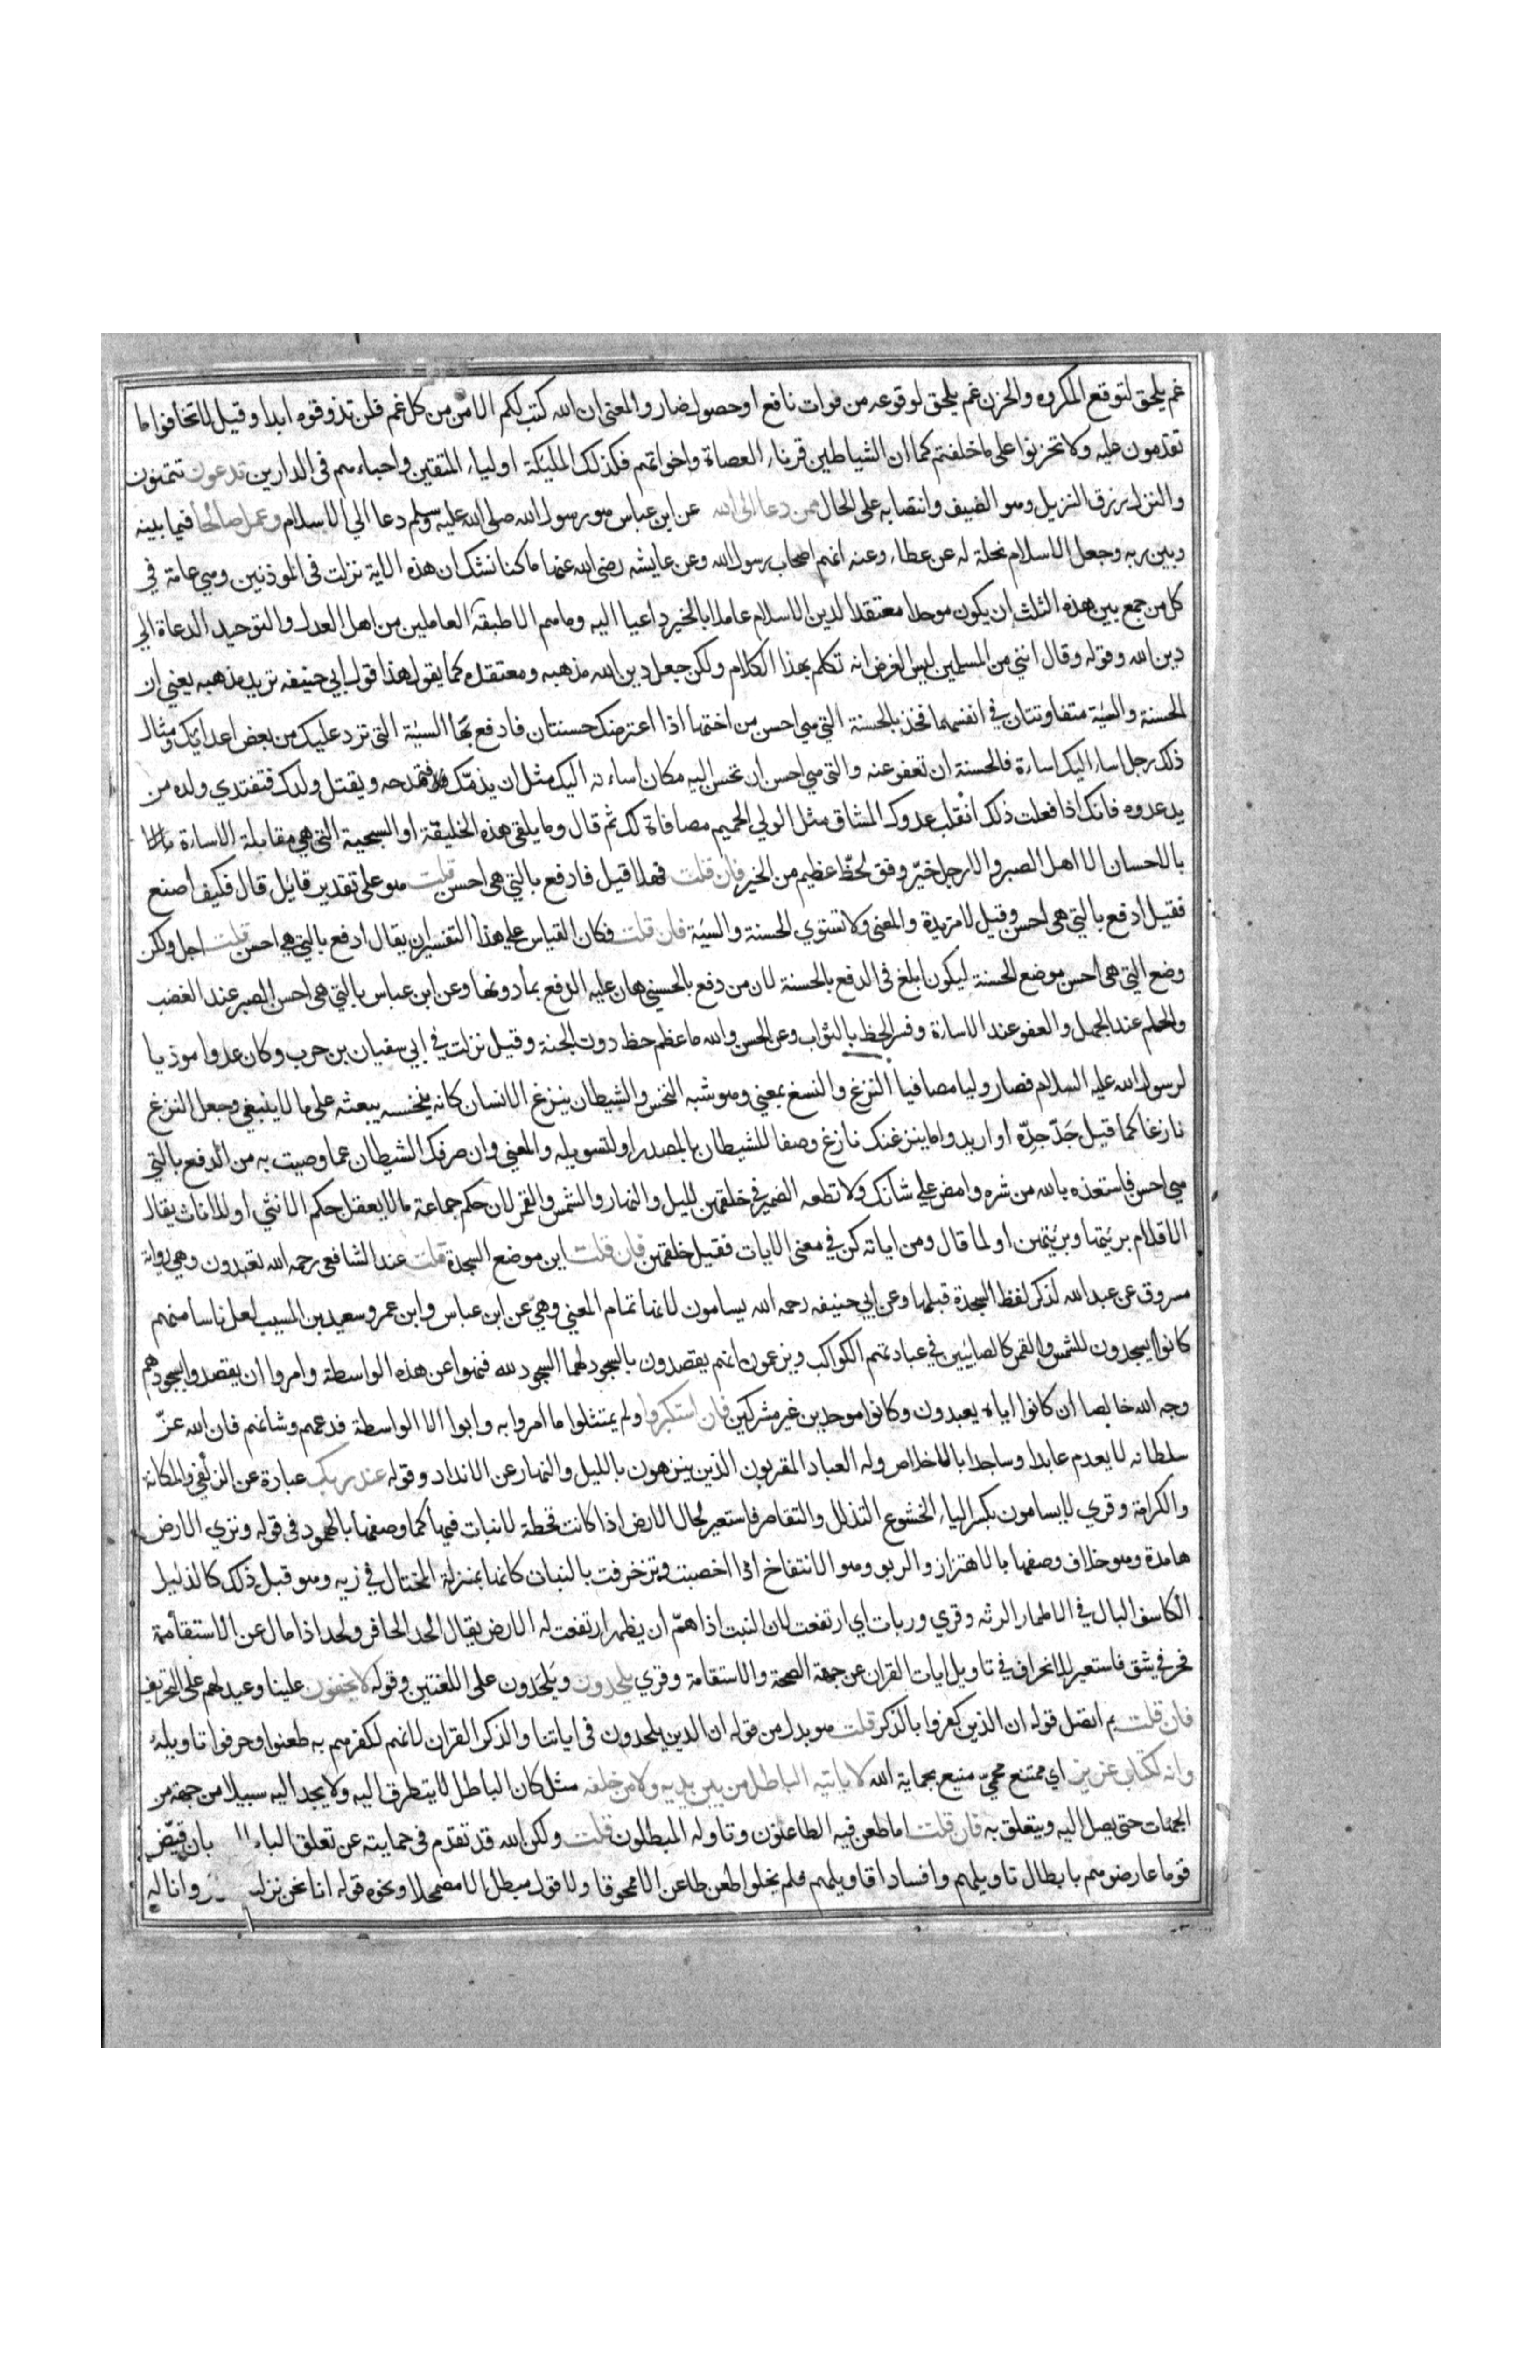 غم يلحق لتوقع المكروه والحزن غم يلحق لوقوعه من فوات نافع او حصول ضار والمعنى ان الله كتب لكم الامن من كل غم فلن تذوقوه ابدا وقيل لا تخافوا ما
تقدمون عليه ولا تحزنوا على ما خلفتم كما ان الشياطين قرناء العصاة واخوانهم فكذلك المليكة اولياء المتقين واحباءهم في الدارين تدعون تتمنون
والنزل رزق النزيل وهو الضيف وانتصابه على الحال ممن دعا الى الله عن ابن عباس هو رسول الله صلى الله عليه وسلم دعا الي الاسلام وعمل صالحا فيما بينه
وبين ربه وجعل الاسلام نحلة له عن عطاء وعنه انهم اصحاب رسول الله وعن عايشه رضى الله عنها ما كنا نشك ان هذه الاية نزلت في الموذنين وهي عامة في
كل من جمع بين هذه الثلث ان يكون موحدا معتقدا لدين الاسلام عاملا بالخير داعيا اليه وما هم الا طبقة العاملين من اهل العدل والتوحيد الدعاة الي
دين الله وقوله وقال انني من المسلمين ليس الغرض انه تكلم بهذا الكلام ولكن جعل دين الله مذهبه ومعتقده كما يقول هذا قول ابي حنيفه تريد مذهبه يعني ان
الحسنة والسيئة متفاوتتان في انفسهما فخذ بالحسنة التي هي احسن من اختها اذا اعترضك حسنتان فادفع بها السيئة التي ترد عليك من بعض اعدائك ومثال
ذلك رجل اساء اليك اساءة فالحسنة ان تعفو عنه والتي هي احسن ان تحسن اليه مكان اساءته اليك مثل ان يذمك فتمدحه ويقتل ولدك فتفتدي ولده من
يد عدوه فانك اذا فعلت ذلك انقلب عدوك المشاق مثل الولي الحميم مصافاة لك ثم قال وما يلقى هذه الخليقة او السجية التي هي مقابلة الاساءة
بالاحسان الا اهل الصبر والا رجل خير وفق لحظ عظيم من الخير فان قلت فهلا قيل فادفع بالتي هي احسن قلت هو على تقدير قايل قال فكيف اصنع
فقيل ادفع بالتي هي احسن وقيل لا مزيدة والمعنى ولا تستوي الحسنة والسيئة فان قلت فكان القياس على هذا التفسير ان يقال ادفع بالتي هي احسن قلت اجل ولكن
وضع التي هي احسن موضع الحسنة ليكون ابلغ في الدفع بالحسنة لان من دفع بالحسنى هان عليه الدفع بما دونها وعن ابن عباس بالتي هي احسن الصبر عند الغضب
والحلم عند الجهل والعفو عند الاساءة وفسر الحظ بالثواب وعن الحسن والله ما عظم حظ دون الجنة وقيل نزلت في ابي سفيان بن حرب وكان عدوا موذيا
لرسول الله عليه السلام فصار وليا مصافيا النزغ والنسغ بمعني وهو شبه النخس والشيطان ينزغ الانسان كانه ينخسه يبعثه على ما لا ينبغي وجعل النزغ
نازغا كما قيل جد جده او اريد واما ينزغنك نازغ وصفا للشيطان بالمصدر او لتسويله والمعني وان صرفك الشيطان عما وصيت به من الدفع بالتي
هي احسن فاستعذه بالله من شره وامض علي شانك ولا تطعه الضمير في خلقهن لليل والنهار والشمس والقمر لان حكم جماعة ما لا يعقل حكم الانثي او الاناث يقال
الاقلام بريتها وبريتهن او لما قال ومن اياته كن في معنى الايات فقيل خلقهن فان قلت اين موضع السجدة قلت عند الشافعي رحمه الله تعبدون وهي رواية
مسروق عن عبد الله لذكر لفظ السجدة قبلها وعن ابي حنيفه رحمه الله يسامون لانها تمام المعني وهي عن ابن عباس وابن عمر وسعيد بن المسيب لعل ناسا منهم
كانوا يسجدون للشمس والقمر كالصابئين في عبادتهم الكواكب ويزعمون انهم يقصدون بالسجود لهما السجود لله فنهوا عن هذه الواسطة وامروا ان يقصدوا بسجودهم
وجه الله خالصا ان كانوا اياه يعبدون وكانوا موحدين غير مشركين فان استكبروا ولم يمتثلوا ما امروا به وابوا الا الواسطة فدعهم وشانهم فان الله عز
سلطانه لا يعدم عابدا وساجدا بالاخلاص وله العباد المقربون الذين ينزهون بالليل والنهار عن الانداد وقوله عند ربك عبارة عن الزلفي والمكانة
والكرامة وقري لا يسامون بكسر الياء الخشوع التذلل والتقاصر فاستعير لحال الارض اذا كانت قحطة لا نبات فيها كما وصفها بالهمود في قوله وتري الارض
هامدة وهو خلاف وصفها بالاهتزاز والربو وهو الانتفاخ اذا اخصبت وتزخرفت بالنبات كانها بمنزلة المختال في زيه وهو قبل ذلك كالذليل
الكاسف البال في الاطمار الرثه وقري وربات اي ارتفعت لان النبت اذا هم ان يظهر ارتفعت له الارض يقال الحد الحافر ولحد اذا مال عن الاستقامة
فحفر في شق فاستعير للانحراف في تاويل ايات القران عن جهة الصحة والاستقامة وقري يلحدون ويلحدون على اللغتين وقوله لا يخفون علينا وعيد لهم على التحريف
فان قلت بم اتصل قوله ان الذين كفروا بالذكر قلت هو بدل من قوله ان الذين يلحدون في اياتنا والذكر القران لانهم لكفرهم به طعنوا وحرفوا تاويله
وانه لكتاب عزيز اي ممتنع محمي منيع بحماية الله لا ياتيه الباطل من بين يديه ولا من خلفه مثل كان الباطل لا يتطرق اليه ولا يجد اليه سبيلا من جهة من
الجهات حتى يصل اليه ويتعلق به فان قلت اما طعن فيه الطاعنون وتاوله المبطلون قلت ولكن الله قد تقدم في حمايته عن تعلق الباء بان قيض
قوما عارضوهم بابطال تاويلهم وافساد اقاويلهم فلم يخلوا طعن طاعن الا ممحوقا ولا قول مبطل الا مضمحلا ونحوه قوله انا نحن نزلنا وانا له